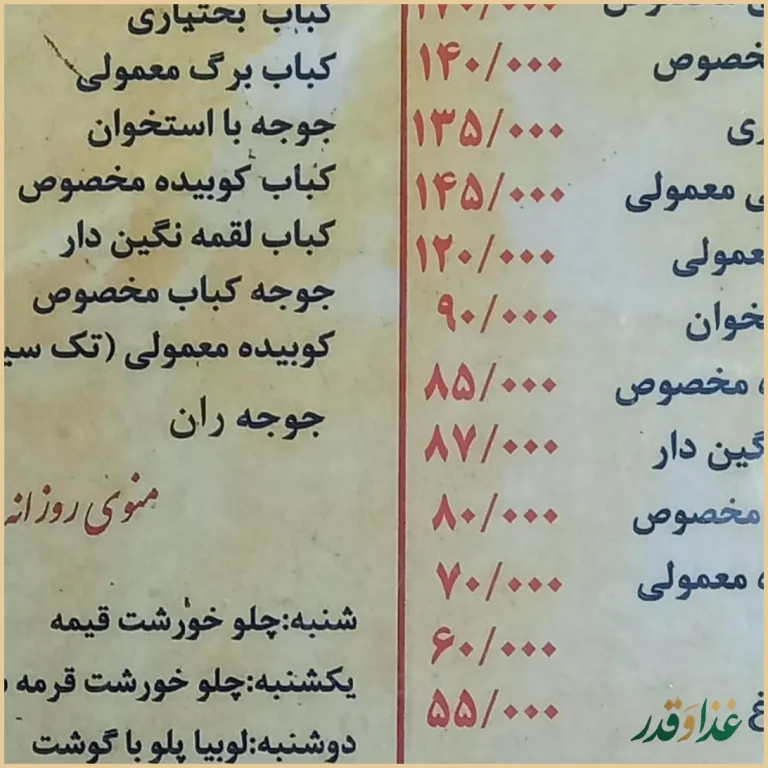 مخصوص
۱۴۰/۰۰۰
۱۳۵/۰۰۰
معمولی ۱۴۵/۰۰۰
معمولی ۱۲۰/۰۰۰
۹۰/۰۰۰
مخصوص ۸۵/۰۰۰
دار ۸۷/۰۰۰
مخصوص ۸۰/۰۰۰
معمولی ۷۰/۰۰۰
۶۰/۰۰۰
۵۵/۰۰۰
کباب بختیاری
کباب برگ معمولی
جوجه با استخوان
کباب کوبیده مخصوص
کباب لقمه نگین دار
جوجه کباب مخصوص
کوبیده معمولی (تک
جوجه ران
منوی روزانه
شنبه:چلو خورشت قیمه
یکشنبه:چلو خورشت قرمه
دوشنبه:لوبیا پلو با گوشت
غذا و قدر